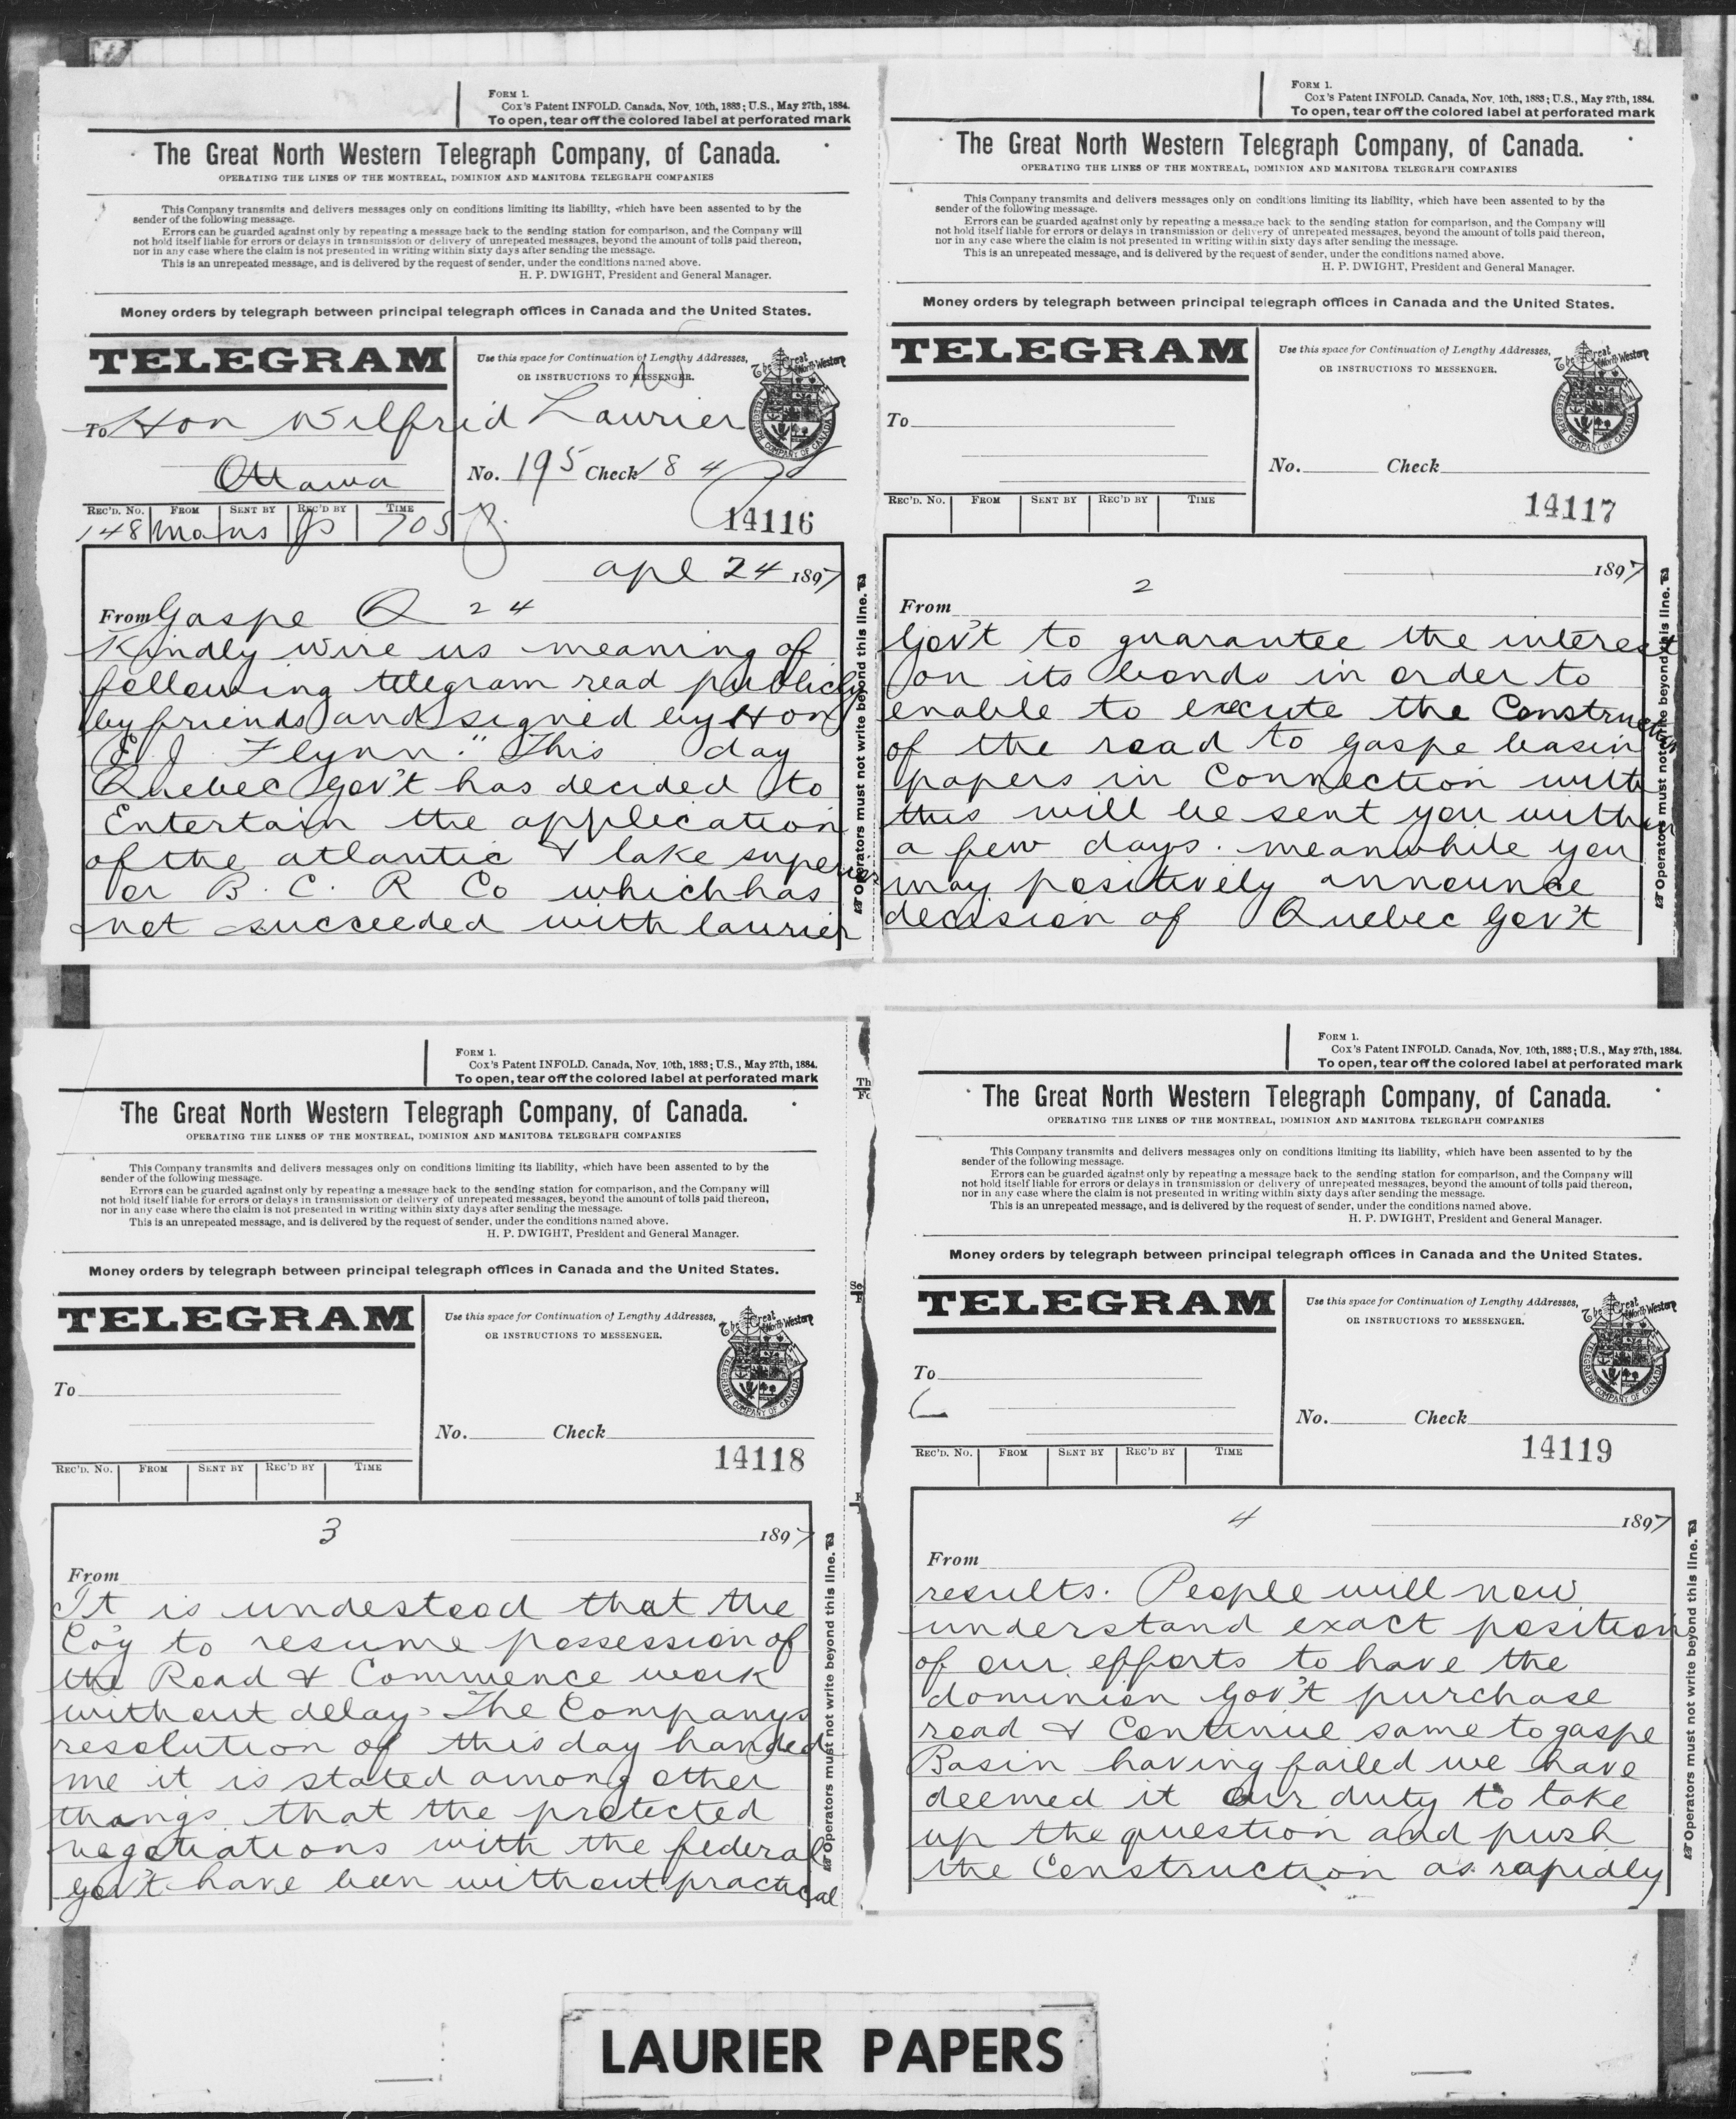 FORM 1.
Cox's Patent INFOLD. Canada, Nov. 10th, 1883; U.S., May 27th, 1884.
To open, tear off the colored label at perforated mark
The Great North Western Telegraph Company, of Canada.
OPERATING THE LINES OF THE MONTREAL, DOMINION AND MANITOBA TELEGRAPH COMPANIES
This Company transmits and delivers messages only on conditions limiting its liability, which have been assented to by the
sender of the following message.
Errors can be guarded against only by repeating a message back to the sending station for comparison, and the Company will
not hold itself liable for errors or delays in transmission or delivery of unrepeated messages, beyond the amount of tolls paid thereon,
nor in any case where the claim is not presented in writing within sixty days after sending the message.
This is an unrepeated message, and is delivered by the request of sender, under the conditions named above.
H. P. DWIGHT, President and General Manager.
Money orders by telegraph between principal telegraph offices in Canada and the United States.
TELEGRAM
Use this space for Continuation of Lengthy Addresses,
OR INSTRUCTIONS TO MESSENGER.
The Great North Western
TELEGRAPH COMPANY OF CANADA
To Hon Wilfrid Laurier
Ottawa
No. 195 Check 184
REC'D. No. FROM SENT BY REC'D BY TIME
148 Ma ns 705
14116
apl 24 1897
From Gaspe Q 24
Kindly wire us meaning of
following telegram read publicly
by friends and signed by Hon
E. J Flynn." This day
Quebec gov't has decided to
Entertain the application
of the atlantic & lake superior
or B. C. R Co which has
not succeeded with laurier
Operators must not write beyond this line.
FORM 1.
Cox's Patent INFOLD. Canada, Nov. 10th, 1883; U.S., May 27th, 1884.
To open, tear off the colored label at perforated mark
The Great North Western Telegraph Company, of Canada.
OPERATING THE LINES OF THE MONTREAL, DOMINION AND MANITOBA TELEGRAPH COMPANIES
This Company transmits and delivers messages only on conditions limiting its liability, which have been assented to by the
sender of the following message.
Errors can be guarded against only by repeating a message back to the sending station for comparison, and the Company will
not hold itself liable for errors or delays in transmission or delivery of unrepeated messages, beyond the amount of tolls paid thereon,
nor in any case where the claim is not presented in writing within sixty days after sending the message.
This is an unrepeated message, and is delivered by the request of sender, under the conditions named above.
H. P. DWIGHT, President and General Manager.
Money orders by telegraph between principal telegraph offices in Canada and the United States.
TELEGRAM
Use this space for Continuation of Lengthy Addresses,
OR INSTRUCTIONS TO MESSENGER.
The Great North Western
TELEGRAPH COMPANY OF CANADA
To
No. Check
REC'D. No. FROM SENT BY REC'D BY TIME
14117
1897
2
From
Gov't to guarantee the interest
on its bonds in order to
enable to execute the Construction
of the road to gaspe basin
papers in Connection with
this will be sent you within
a few days. meanwhile you
may positively announce
decision of Quebec Gov't
Operators must not write beyond this line.
FORM 1.
Cox's Patent INFOLD. Canada, Nov. 10th, 1883; U.S., May 27th, 1884.
To open, tear off the colored label at perforated mark
The Great North Western Telegraph Company, of Canada.
OPERATING THE LINES OF THE MONTREAL, DOMINION AND MANITOBA TELEGRAPH COMPANIES
This Company transmits and delivers messages only on conditions limiting its liability, which have been assented to by the
sender of the following message.
Errors can be guarded against only by repeating a message back to the sending station for comparison, and the Company will
not hold itself liable for errors or delays in transmission or delivery of unrepeated messages, beyond the amount of tolls paid thereon,
nor in any case where the claim is not presented in writing within sixty days after sending the message.
This is an unrepeated message, and is delivered by the request of sender, under the conditions named above.
H. P. DWIGHT, President and General Manager.
Money orders by telegraph between principal telegraph offices in Canada and the United States.
TELEGRAM
Use this space for Continuation of Lengthy Addresses,
OR INSTRUCTIONS TO MESSENGER.
The Great North Western
TELEGRAPH COMPANY OF CANADA
To
No. Check
REC'D. No. FROM SENT BY REC'D BY TIME
14118
3
1897
From
It is undestood that the
Co'y to resume possession of
the Road & Commence work
without delay. The Companys
resolution of this day handed
me it is stated among other
things that the protected
negotiations with the federal
gov't have been without practical
Operators must not write beyond this line.
FORM 1.
Cox's Patent INFOLD. Canada, Nov. 10th, 1883; U.S., May 27th, 1884.
To open, tear off the colored label at perforated mark
The Great North Western Telegraph Company, of Canada.
OPERATING THE LINES OF THE MONTREAL, DOMINION AND MANITOBA TELEGRAPH COMPANIES
This Company transmits and delivers messages only on conditions limiting its liability, which have been assented to by the
sender of the following message.
Errors can be guarded against only by repeating a message back to the sending station for comparison, and the Company will
not hold itself liable for errors or delays in transmission or delivery of unrepeated messages, beyond the amount of tolls paid thereon,
nor in any case where the claim is not presented in writing within sixty days after sending the message.
This is an unrepeated message, and is delivered by the request of sender, under the conditions named above.
H. P. DWIGHT, President and General Manager.
Money orders by telegraph between principal telegraph offices in Canada and the United States.
TELEGRAM
Use this space for Continuation of Lengthy Addresses,
OR INSTRUCTIONS TO MESSENGER.
The Great North Western
TELEGRAPH COMPANY OF CANADA
To
No. Check
REC'D. No. FROM SENT BY REC'D BY TIME
14119
4
1897
From
results. People will now
understand exact position
of our efforts to have the
dominion Gov't purchase
road & Continue same to gaspe
Basin having failed we have
deemed it our duty to take
up the question and push
the Construction as rapidly
Operators must not write beyond this line.
LAURIER PAPERS